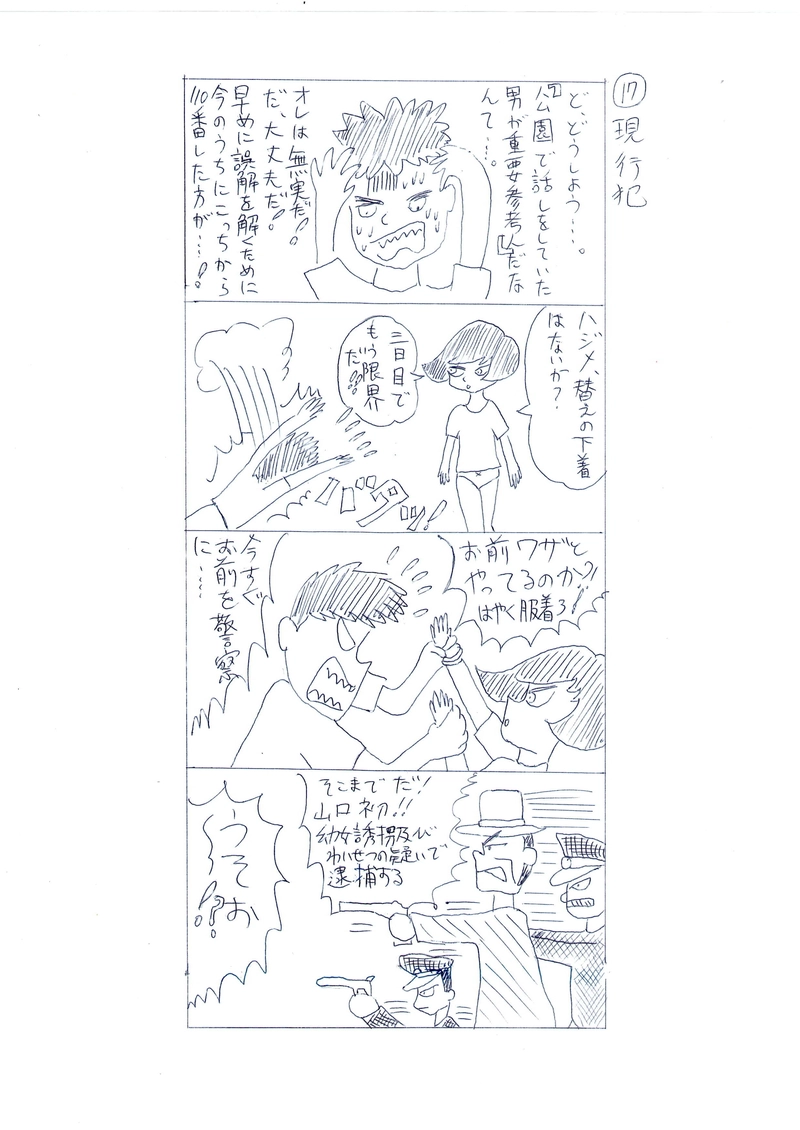 ⑰現行犯
ど、どうしよう…。
『公園で話しをしていた
男が重要参考人』だな
んて…。
オレは無実だ!。
だ、大丈夫だ!。
早めに誤解を解くために
今のうちにこっちから
110番した方が…!。
ハジメ、替えの下着
はないか?
三日目で
もう限界
だ!!
バババッ!
お前ワザと
やってるのか!?
はやく服着ろ!
今すぐ
お前を警察
に…
そこまでだ!
山口初!!
幼女誘拐及び
わいせつの疑いで
逮捕する
うそぉ
!?